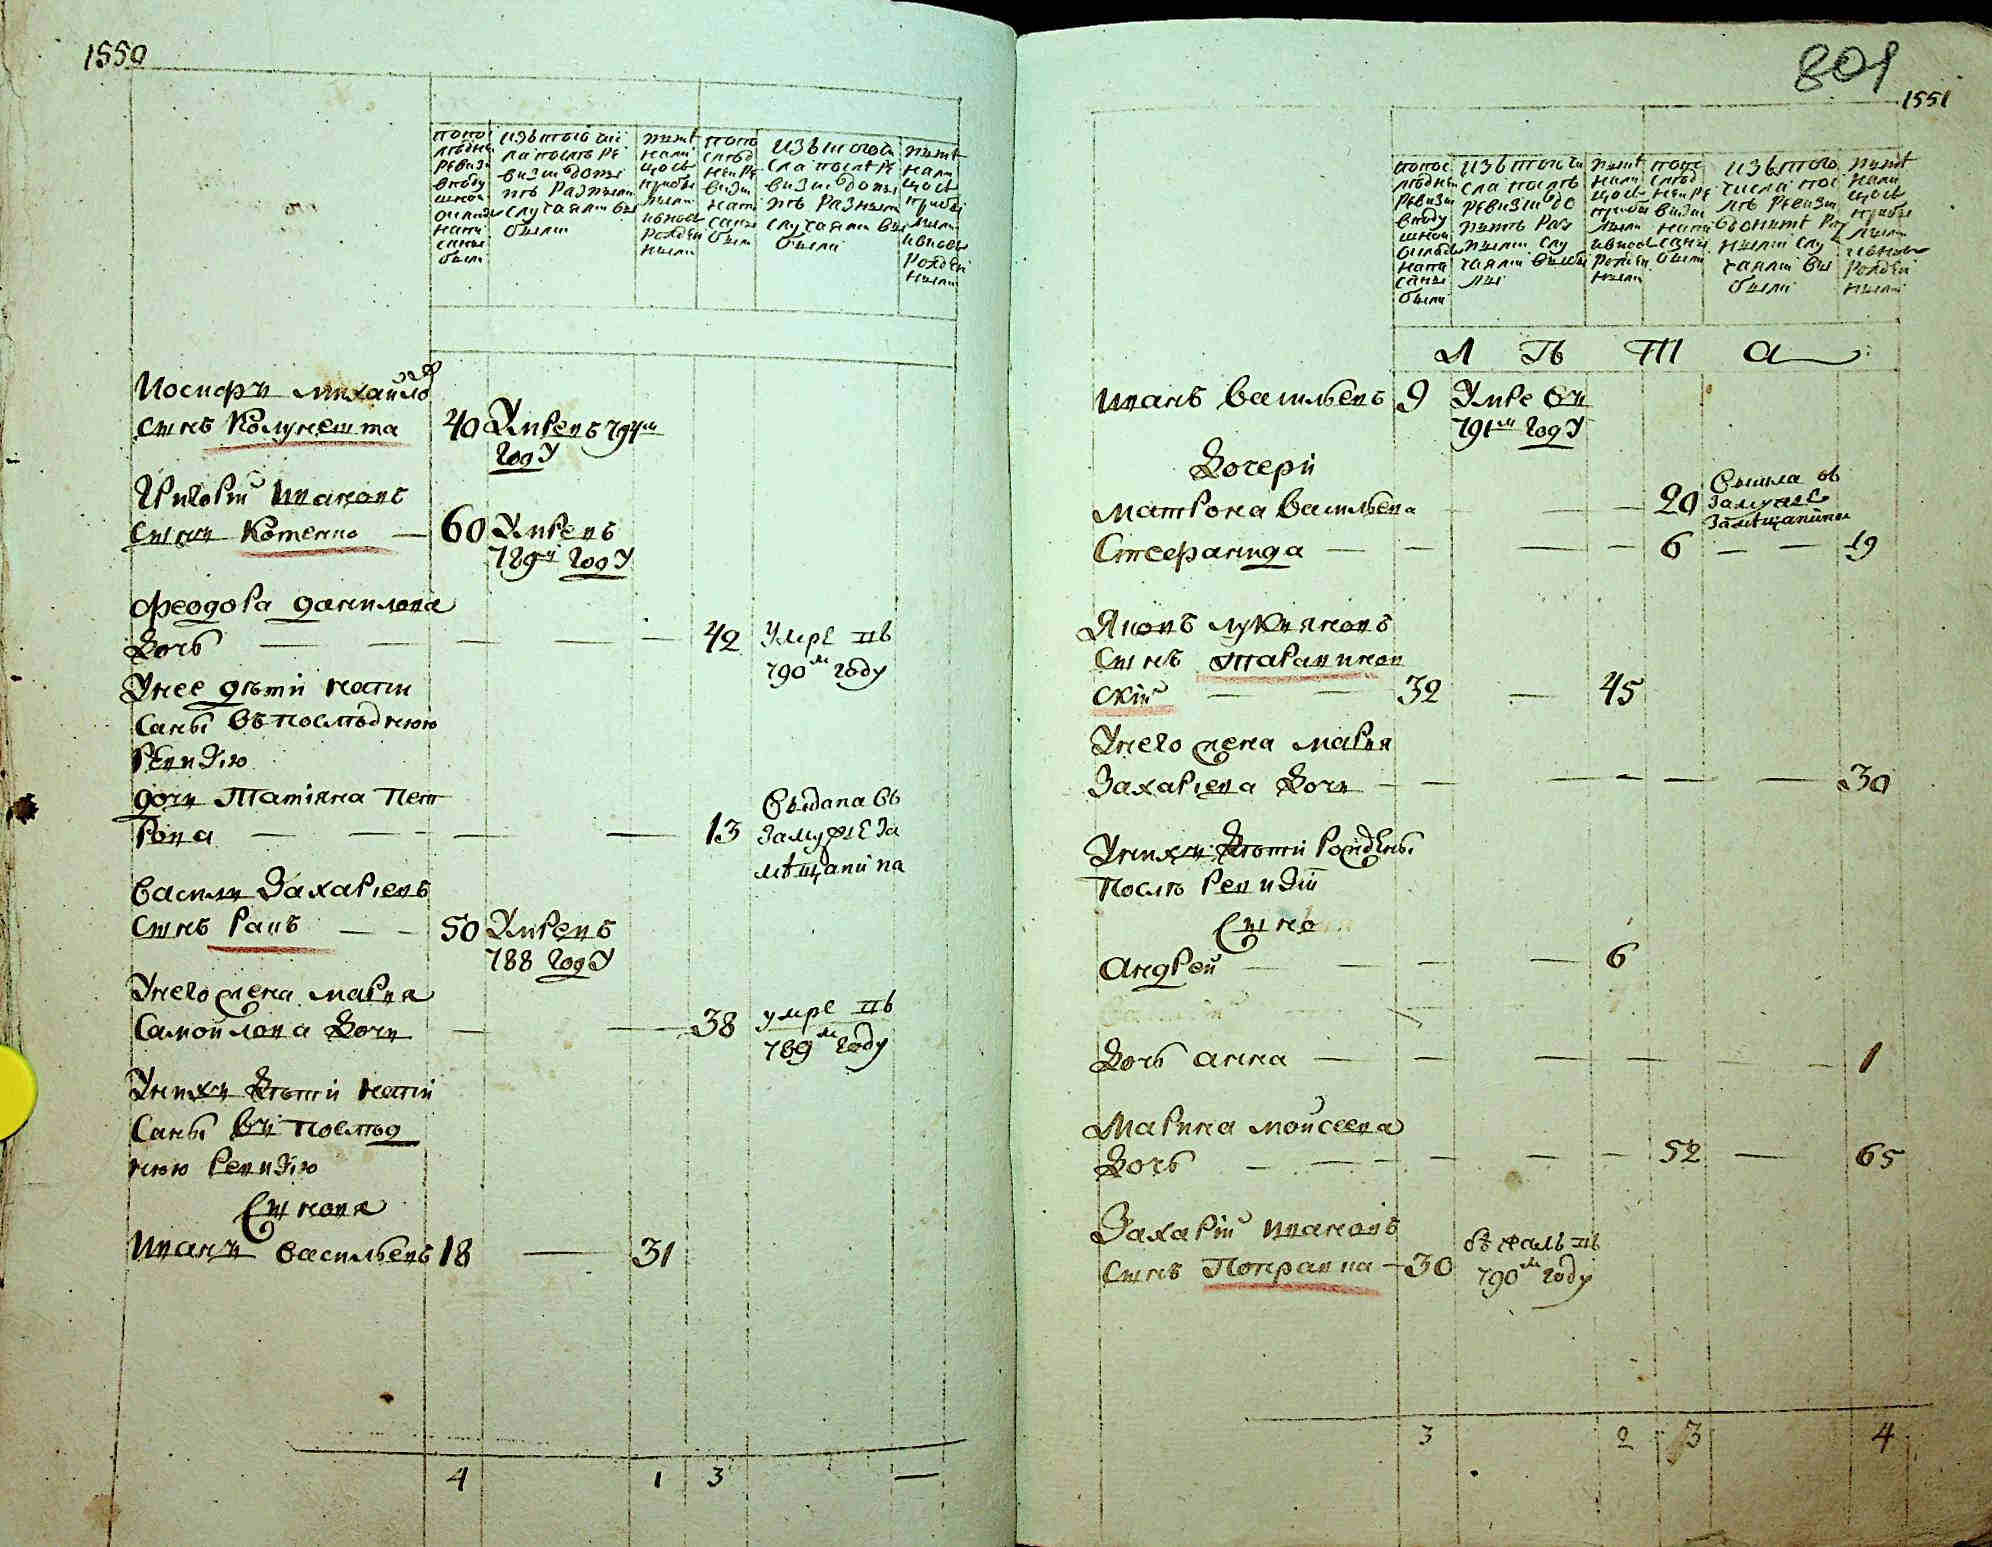 1550
попо
слѣдне
ревизи
в подушной
окладъ
напи
саны
были
изъ того чи
сла послѣ ре
визи до ны
нѣ разными
случаями вы
были
нынѣ
нали
цо съ
прибы
лыми
и вновь
рожден
ными
попо
слѣд
ней ре
визи
напи
саны
были
изъ того чи
сла послѣ ре
визи до ны
нѣ разными
случаями вы
были
нынѣ
нали
цо съ
прибы
лыми
и вновь
рожден
ными
Иосифъ Михайловъ
сынъ Колунешта 40 Умре въ 794м
году
Григорій Ивановъ
сынъ Котенко — 60 Умре въ
789м году
Феодора Данилова
дочь — — — — — 42 умре въ
790м году
У нее дѣти напи
саны въ последнюю
ревизію
дочь Татіяна Пет
рова — — — — 13 выдана въ
замуже за
мѣщанина
Василь Захаріевъ
сынъ Рацъ — — 50 Умре въ
788 году
У него жена Марія
Самойлова дочь — — 38 умре въ
789м году
У нихъ дѣти напи
саны въ послѣд
нюю ревизію
Сыновя
Иванъ Васильевъ 18 — 31
4 1 3 —
801
1551
попос
лѣдней
ревизи
в поду
шной
окладъ
напи
саны
были
изъ того чи
сла послѣ
ревизи до
нынѣ раз
ными слу
чаями выбы
лы
нынѣ
нали
цо съ
прибы
лыми
и вновь
рожден
ными
попо
слѣд
ней ре
визи
напи
саны
были
изъ того
числа пос
лѣ ревизи
до нынѣ раз
ными слу
чаями вы
были
нынѣ
нали
цо съ
прибы
лыми
и вновь
рожден
ными
Л Ѣ Т А
Иванъ Васильевъ 9 Умре въ
791м году
Дочери
Матрона Васильева — — — 20 вышла въ
замуже
за мещанина
Стефанида — — — — 6 — — 19
Яковъ Лукяновъ
сынъ Тарановон
скій — — 32 — 45
У него жена Марія
Захаріева дочь — — — — — — 30
У нихъ дѣти рождены
послѣ ревизіи
Сынъ
Андрей — — — — 6
Дочь Анна — — — — — — 1
Марина Моисеева
дочь — — — — — — 52 — 65
Захарій Ивановъ
сынъ Попрацка — 30 бѣжалъ въ
790м году
3 2 3 4